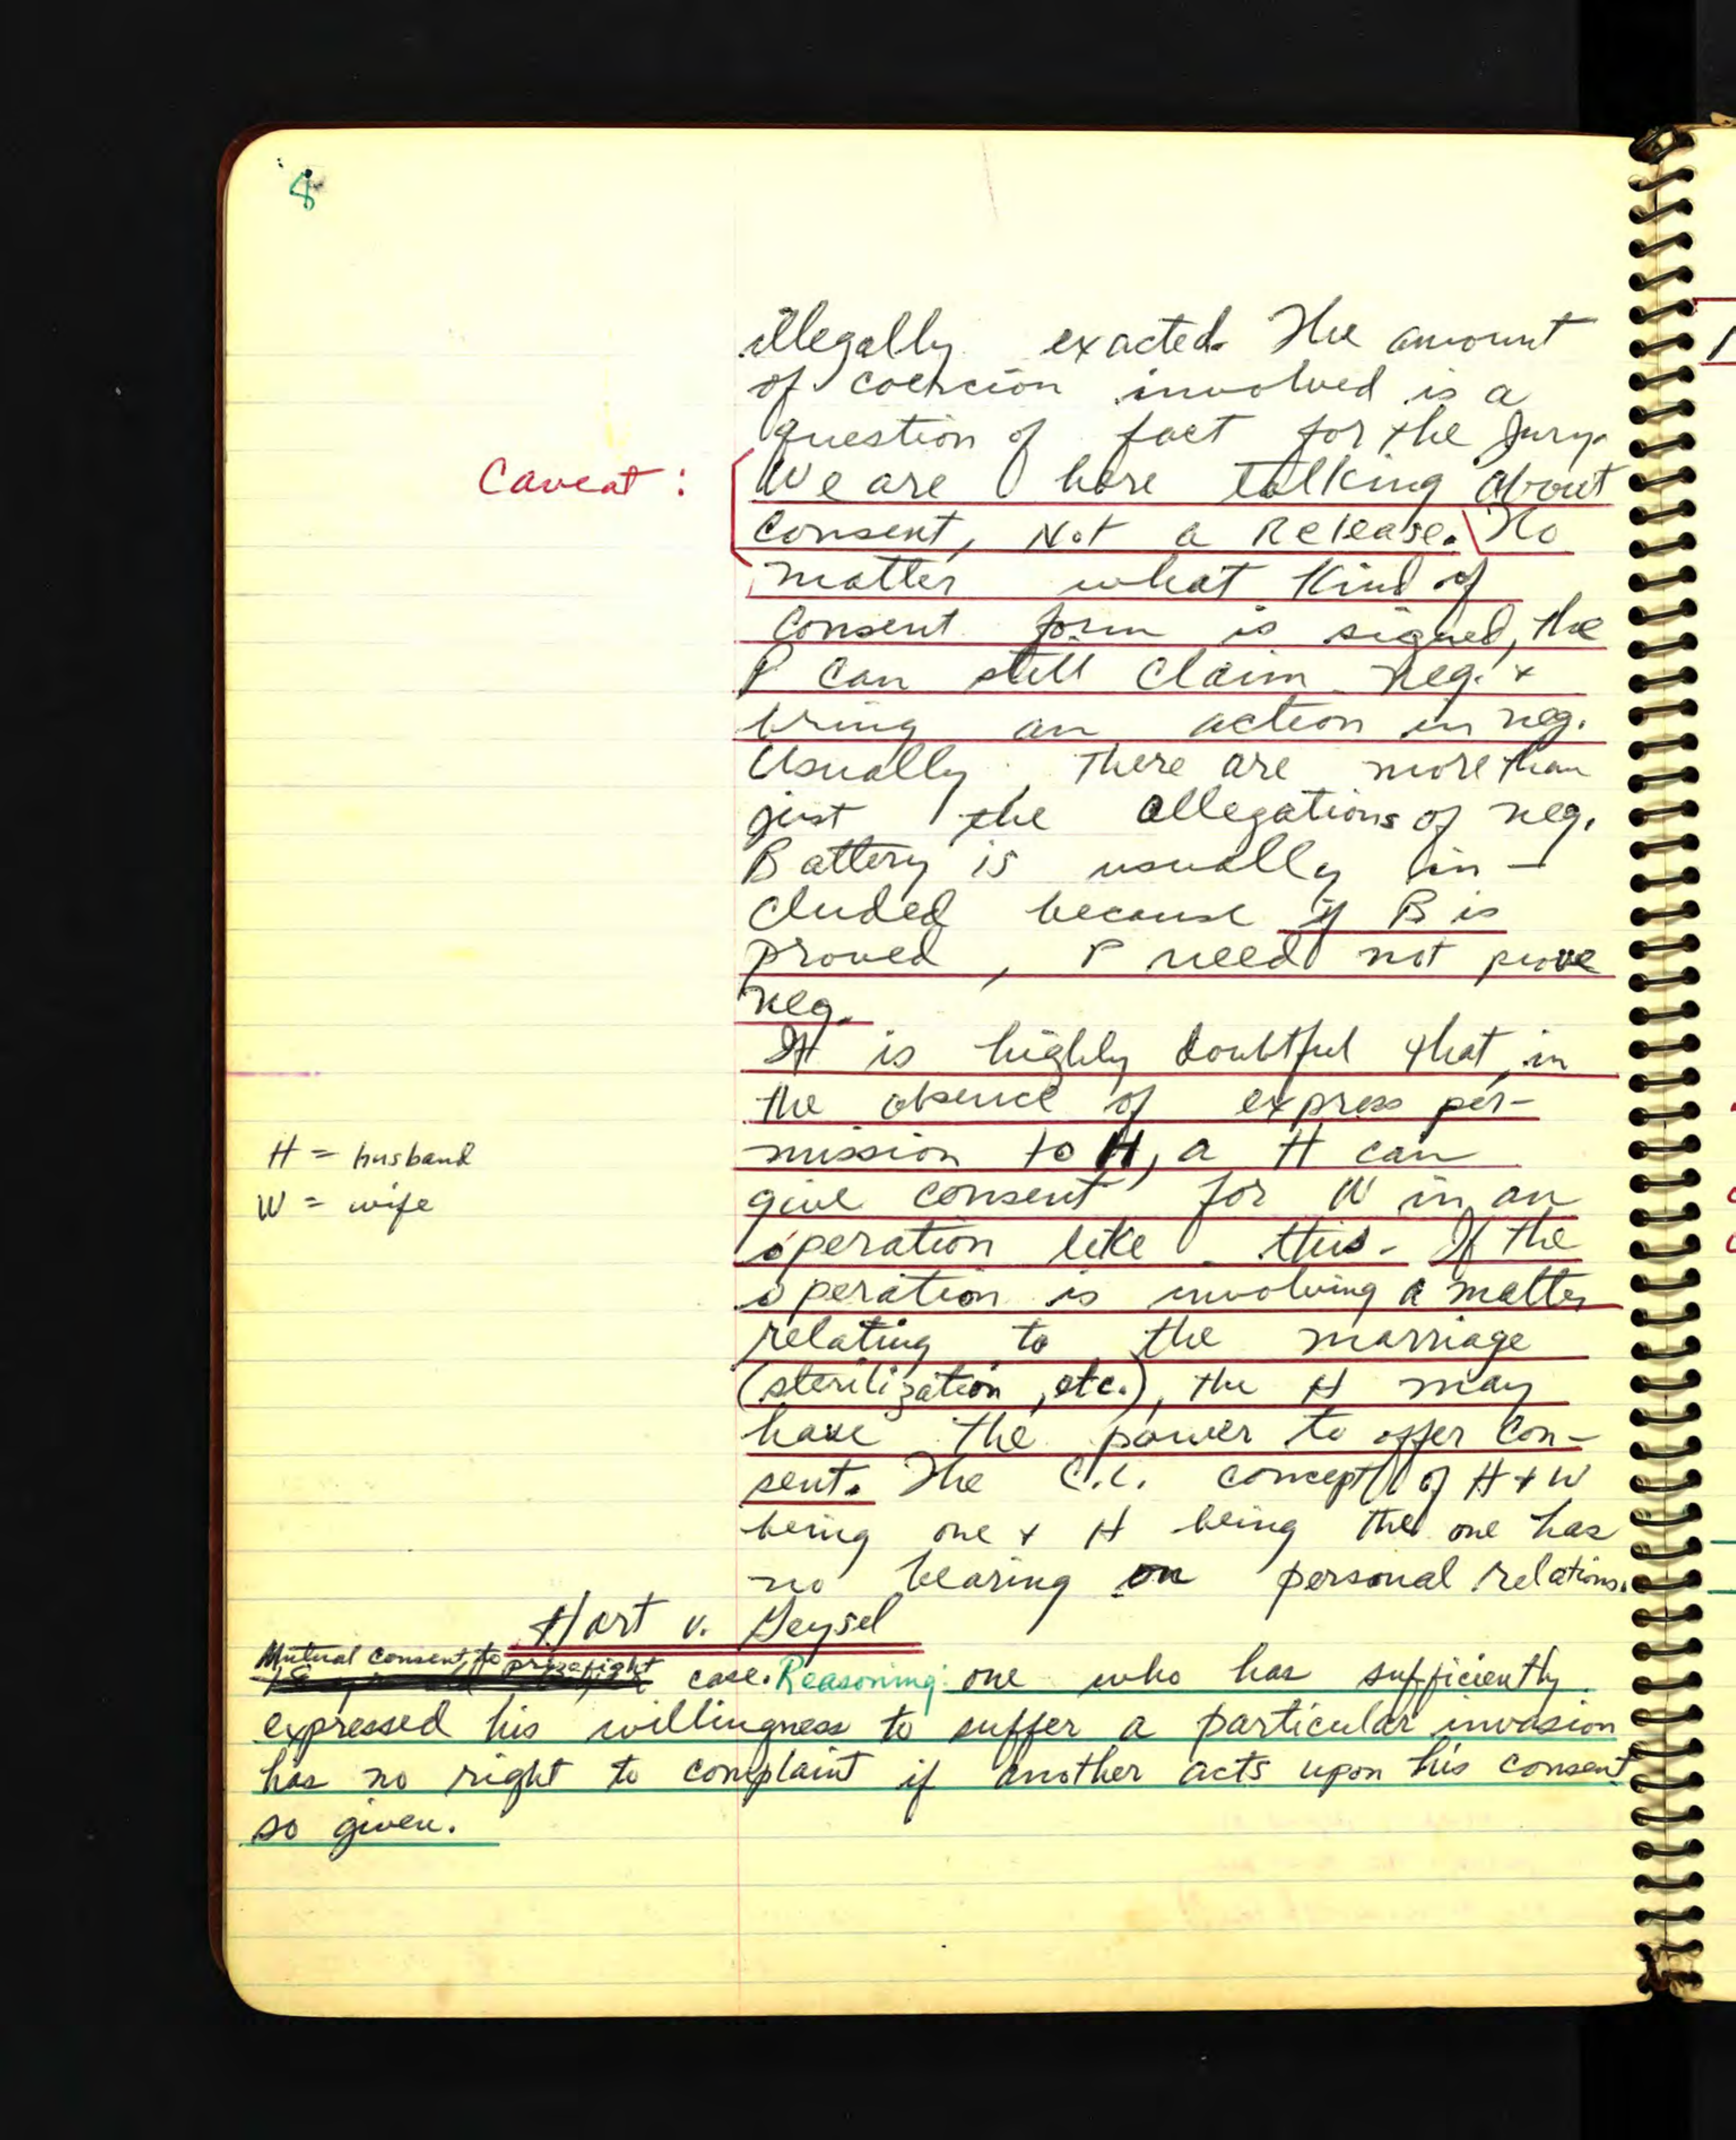 8
illegally exacted. The amount
of coercion involved is a
question of fact for the Jury.
Caveat: We are here talking about
consent, Not a Release. No
matter what kind of
consent form is signed, the
P can still claim neg. +
bring an action in neg.
Usually there are more than
just the allegations of neg.
Battery is usually in-
cluded because if B is
proved, P need not prove
neg.
It is highly doubtful that, in
the absence of express per-
mission to H, a H can
H = husband
give consent for W in an
W = wife
operation like this. If the
operation is involving a matter
relating to the marriage
(sterilization, etc.), the H may
have the power to offer con-
sent. The C.L. concept of H + W
being one + H being the one has
no bearing on personal relations.
Hart v. Geysel
Mutual consent to prizefight case. Reasoning: one who has sufficiently
expressed his willingness to suffer a particular invasion
has no right to complaint if another acts upon his consent
so given.